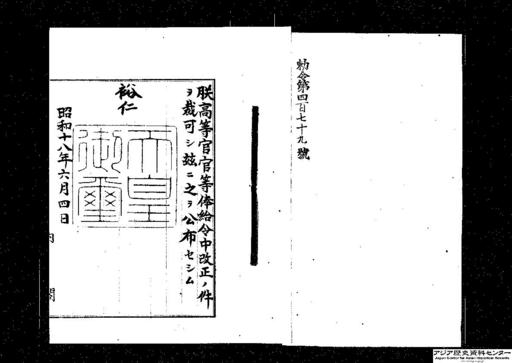 勅令第四百七十九號
朕高等官官等俸給令中改正ノ件
ヲ裁可シ玆ニ之ヲ公布セシム
裕仁
天皇
御璽
昭和十八年六月四日
内閣
アジア歴史資料センター
Japan Center for Asian Historical Records